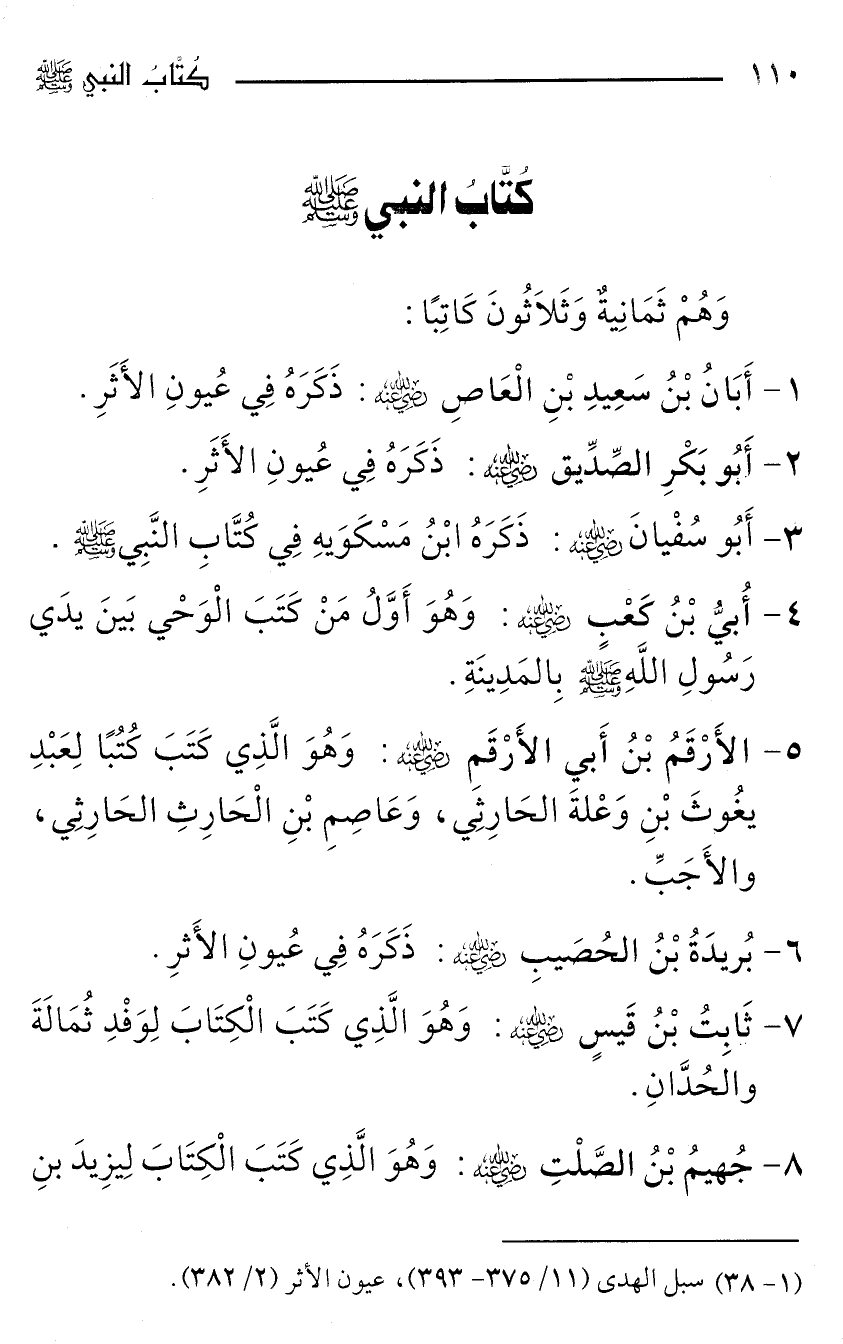 ١١٠ كُتَّابُ النبي ﷺ
كُتَّابُ النبي ﷺ
وَهُمْ ثَمَانِيةٌ وَثَلَاثُونَ كَاتِبًا :
١- أَبَانُ بْنُ سَعِيدِ بْنِ الْعَاصِ رضي الله عنه : ذَكَرَهُ فِي عُيونِ الأَثَرِ .
٢- أَبُو بَكْرِ الصِّدِّيق رضي الله عنه : ذَكَرَهُ فِي عُيونِ الأَثَرِ .
٣- أَبُو سُفْيانَ رضي الله عنه : ذَكَرَهُ ابْنُ مَسْكَوَيهِ فِي كُتَّابِ النَّبِي ﷺ .
٤- أُبيُّ بْنُ كَعْبٍ رضي الله عنه : وَهُوَ أَوَّلُ مَنْ كَتَبَ الْوَحْي بَينَ يدَي
رَسُولِ اللَّهِ ﷺ بِالمَدِينَةِ .
٥- الأَرْقَمُ بْنُ أَبي الأَرْقَمِ رضي الله عنه : وَهُوَ الَّذِي كَتَبَ كُتُبًا لِعَبْدِ
يغُوثَ بْنِ وَعْلةَ الحَارثِي، وَعَاصِمِ بْنِ الْحَارِثِ الحَارِثِي،
والأَجَبِّ .
٦- بُريدَةُ بْنُ الحُصَيبِ رضي الله عنه : ذَكَرَهُ فِي عُيونِ الأَثرِ .
٧- ثَابِتُ بْنُ قَيسٍ رضي الله عنه : وَهُوَ الَّذِي كَتَبَ الْكِتَابَ لِوَفْدِ ثُمَالَةَ
والحُدَّانِ .
٨- جُهيمُ بْنُ الصَّلْتِ رضي الله عنه : وَهُوَ الَّذِي كَتَبَ الْكِتَابَ لِيزِيدَ بنِ
(١- ٣٨) سبل الهدى (١١/ ٣٧٥- ٣٩٣)، عيون الأثر (٢/ ٣٨٢).